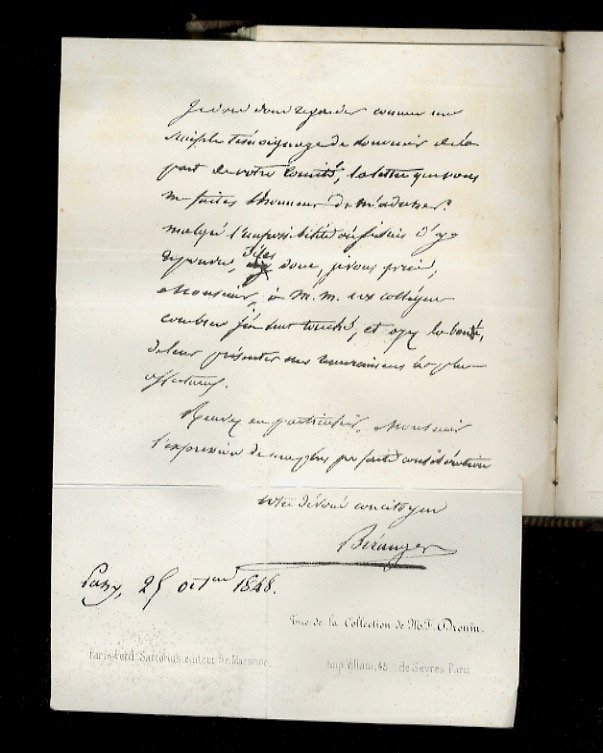 Je dois donc regarder comme une
simple témoignage de souvenir de la
part de votre Comité, la lettre que vous
me faites l'honneur de m'adresser.
malgré l'impossibilité où je suis d'y
répondre, Dites donc, je vous prie,
Monsieur, à M.M. vos collègues
combien j'en suis touché, et ayez la bonté,
de leur présenter mes remerciemens les plus
affectueux.
Recevez en particulier, Monsieur
l'expression de ma plus parfaite considération
votre dévoué concitoyen
Béranger
Passy, 25 octbre 1848.
Tiré de la Collection de Mr F. Drouin.
Paris Ferd. Sartorius editeur Mazarine
Imp Villain, 45 de Sèvres Paris